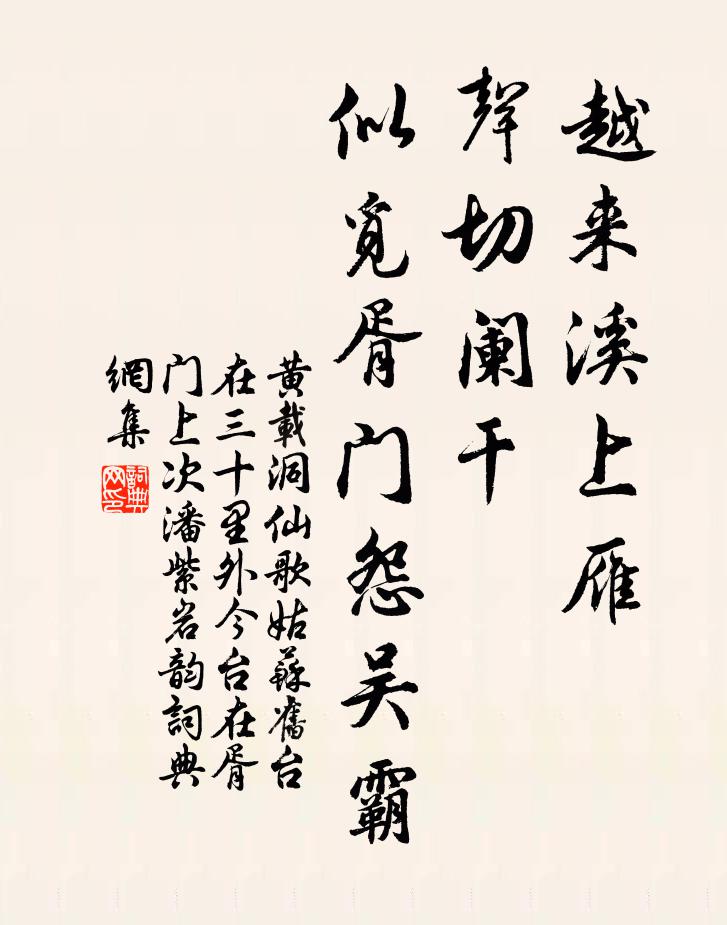 越来溪上雁
聲切阑干
似覓胥门怨吴霸
黄載洞仙歌姑蘇舊台
在三十里外今台在胥
门上次潘紫岩韵詞典
網集
詞典網印